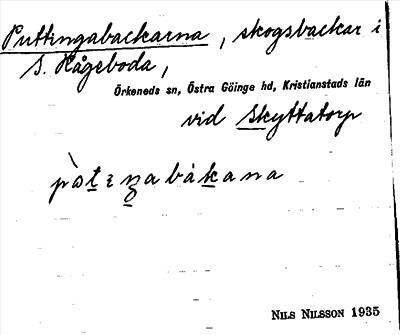 Puttingabackarna, skogsbackar i
S. Kågeboda,
Örkeneds sn, Östra Göinge hd, Kristianstads län
vid Skyttatorp
NILS NILSSON 1935